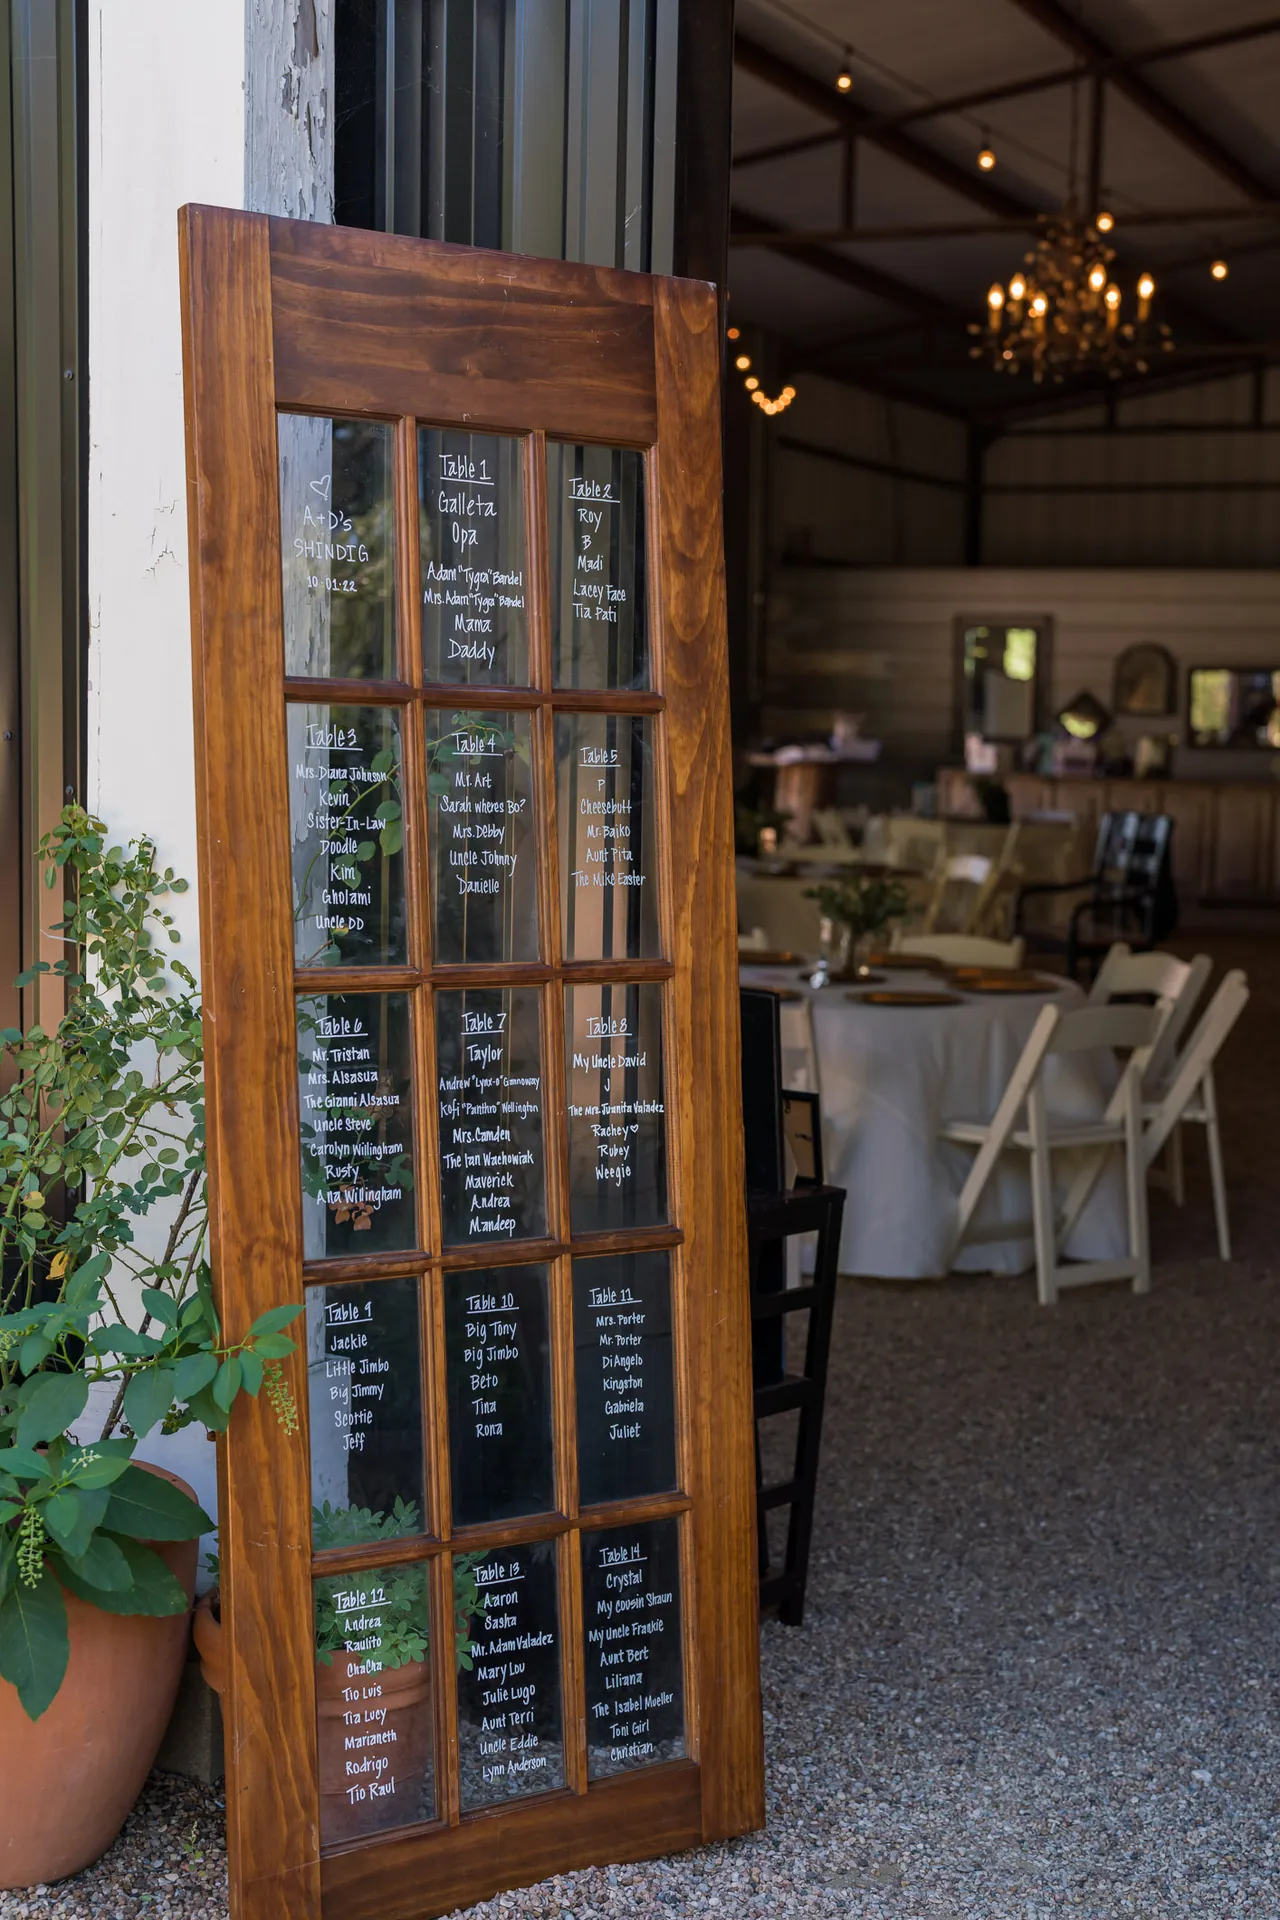 A+D's
SHINDIG
10·01·22
Table 1
Galleta
Opa
Adam "Tygra" Bandel
Mrs. Adam "Tygra" Bandel
Mama
Daddy
Table 2
Roy
B
Madi
Lacey Face
Tia Pati
Table 3
Mrs. Diana Johnson
Kevin
Sister-In-Law
Doodle
Kim
Gholami
Uncle DD
Table 4
Mr. Art
Sarah wheres Bo?
Mrs. Debby
Uncle Johnny
Danielle
Table 5
P
Cheesebutt
Mr. Baiko
Aunt Pita
The Mike Easter
Table 6
Mr. Tristan
Mrs. Alsasua
The Gianni Alsasua
Uncle Steve
Carolyn Willingham
Rusty
Ana Willingham
Table 7
Taylor
Andrew "Lynx-o" Gannoway
Kofi "Panthro" Wellington
Mrs. Camden
The Ian Wachowiak
Maverick
Andrea
Mandeep
Table 8
My Uncle David
J
The Mrs. Juanita Valadez
Rachey♡
Rubey
Weegie
Table 9
Jackie
Little Jimbo
Big Jimmy
Scottie
Jeff
Table 10
Big Tony
Big Jimbo
Beto
Tina
Rona
Table 11
Mrs. Porter
Mr. Porter
DiAngelo
Kingston
Gabriela
Juliet
Table 12
Andrea
Raulito
ChaCha
Tio Luis
Tia Lucy
Marianeth
Rodrigo
Tio Raul
Table 13
Aaron
Sasha
Mr. Adam Valadez
Mary Lou
Julie Lugo
Aunt Terri
Uncle Eddie
Lynn Anderson
Table 14
Crystal
My cousin Shaun
My Uncle Frankie
Aunt Bert
Liliana
The Isabel Mueller
Toni Girl
Christian